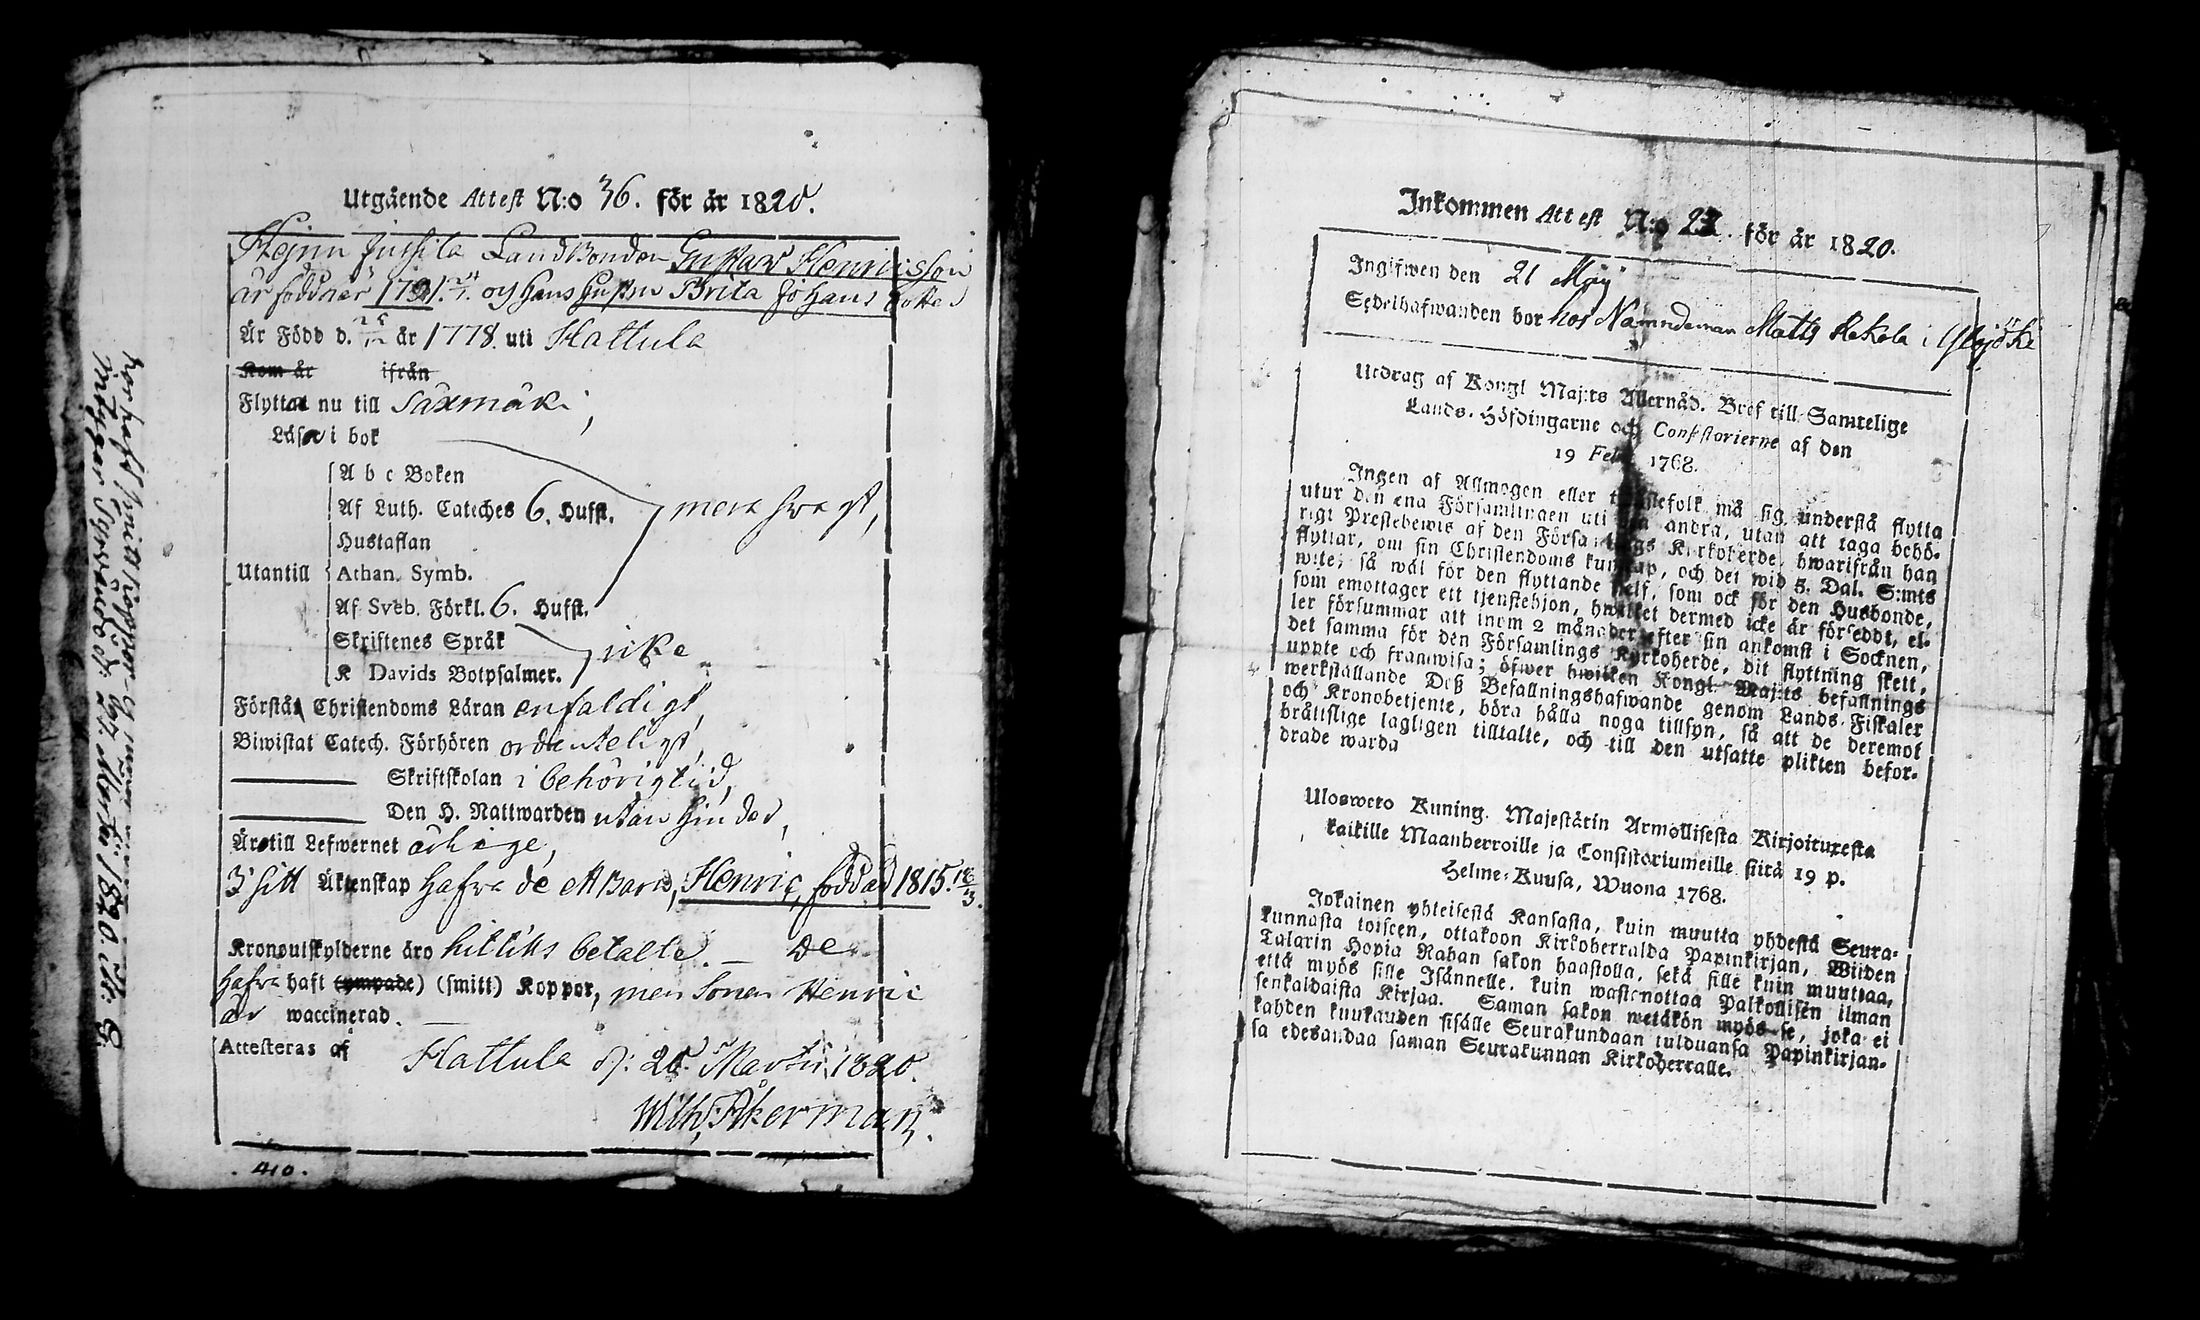 Utgående Attest N:o 36. för år 1820.
LandBonden Gustav Henricsson
är född när 1791 oc hans hustru Brita Johans dotter
Är Född d. år 1778. uti Hattula
Kom år ifrån
Flyttar nu till Säxmäki,
Läser i bok
A b c Boken
Af Luth. Cateches 6. Hufst. mera svagt,
Hustaflan
Utantill Athan. Symb.
Af Sveb. Förkl. 6. Hufst.
Skriftenes Språk icke
K Davids Botpsalmer.
Förstår Christendoms Läran enfaldigt,
Biwistat Catech. Förhören ordenteligt,
Skriftskolan i behörig tid,
Den H. Nattwarden utan hinder,
Äro till Lefwernet ärlige,
I sitt Äktenskap hafva de ett Barn, Henric, född 1815. 18/3.
Kronoutskylderne äro hittills betalte. — De
hafva haft (ympade) (smitt) Koppor, men sonen Henric
är waccinerad.
Attesteras af Hattula d. 20. Martii 1820.
Wilh. Åkerman.
410.
Inkommen Attest N:o för år 1820.
Ingifwen den 21 Maij
Sedelhafwanden bor hos Nämndeman Matts Rekola i
Utdrag af Kongl Maj:ts Allernåd. Bref till Samtelige
Lands-Höfdingarne och Consistorierne af den
19 Febr. 1768.
Ingen af Allmogen eller tjenstefolk må sig understå flytta
utur den ena Församlingen uti den andra, utan att taga behö-
rigt Prestebewis af den Församlings Kyrkoherde, hwarifrån han
flyttar, om sin Christendoms kunskap, och det wid 5. Dal. S:mts
wite; så wäl för den flyttande sielf, som ock för den Husbonde,
som emottager ett tjenstehjon, hwilket dermed icke är försedt, el-
ler försummar att inom 2 månader efter sin ankomst i Socknen,
det samma för den Församlings Kyrkoherde, dit flyttning skett,
uppte och framwisa; öfwer hwilken Kongl. Maj:ts befallnings
werkställande Deß Befallningshafwande genom Lands-Fiskaler
och Kronobetjente, böra hålla noga tillsyn, så att de deremot
bråttslige lagligen tilltalte, och till den utsatte plikten befor-
drade warda
Uloswero Kuning. Majestätin Armollisesta Kirjoituxesta
kaikille Maanherroille ja Consistoriumeille siitä 19 p.
Helme-Kuusa, Wuona 1768.
Jokainen yhteisestä Kansasta, kuin muutta yhdestä Seura-
kunnasta toiseen, ottakoon Kirkoherralda Papinkirjan, Wiiden
Talarin Hopia Rahan sakon haastolla, sekä sille kuin muuttaa,
että myös sille Isännelle, kuin wastanottaa Palkollisen ilman
senkaldaista Kirjaa. Saman sakon wetäkön myös se, joka ei
kahden kuukauden sisälle Seurakundaan tulduansa Papinkirjan-
sa edesandaa saman Seurakunnan Kirkoherralle.